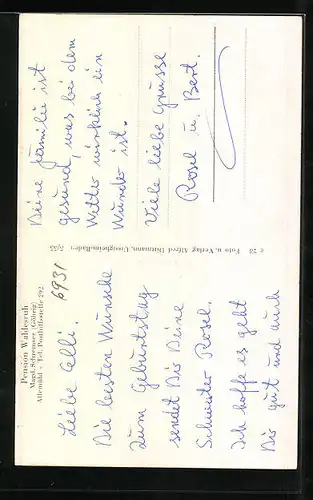 Pension Waldesruh
Magd. Schwemser (Göhrig)
Allemühl - Tel. Posthilfsstelle 292
6931
Liebe Elli.
Die besten Wünsche
zum Geburtstag
sendet Dir Deine
Schwester Rosel.
Ich hoffe es geht
Dir gut und auch
c 78 Foto u. Verlag Alfred Dürmann, Unteighelm-Baden 5/55
Deine Familie ist
gesund, was bei dem
Wetter wirklich ein
Wunder ist.
Viele liebe Grüsse
Rosel u. Bert.